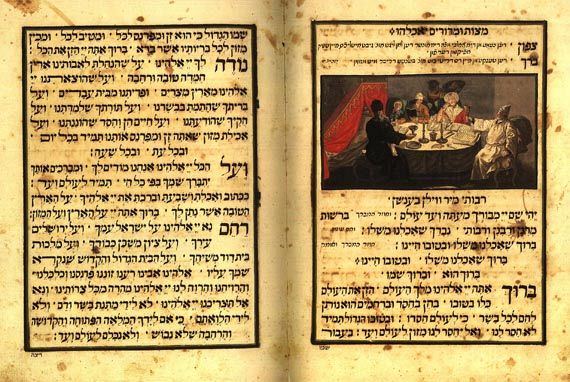 מצות ומרורים יאכלהו
צפון
ברך
רבותי מיר ווילן בענשן
יהי שם יי מבורך מעתה ועד עולם : ברשות
מרנן ורבנן ורבותי נברך שאכלנו משלו :
ברוך שאכלנו משלו ובטובו חיינו :
ברוך שאכלנו משלו ובטובו חיינו :
ברוך הוא וברוך שמו :
ברוך אתה יי אלהינו מלך העולם הזן את העולם
כלו בטובו בחן בחסד וברחמים הוא נותן
לחם לכל בשר כי לעולם חסדו : ובטובו הגדול תמיד
לא חסר לנו ואל יחסר לנו מזון לעולם ועד : בעבור
שמו
שמו הגדול כי הוא זן ומפרנס לכל ומטיב לכל ומכין
מזון לכל בריותיו אשר ברא ברוך אתה יי הזן את הכל :
נודה לך יי אלהינו על שהנחלת לאבותינו ארץ
חמדה טובה ורחבה ועל שהוצאתנו יי
אלהינו מארץ מצרים ופדיתנו מבית עבדים ועל
בריתך שחתמת בבשרנו ועל תורתך שלמדתנו ועל
חקיך שהודעתנו ועל חיים חן וחסד שחוננתנו ועל
אכילת מזון שאתה זן ומפרנס אותנו תמיד בכל יום
ובכל עת ובכל שעה :
ועל הכל יי אלהינו אנחנו מודים לך ומברכים אותך
יתברך שמך בפי כל חי תמיד לעולם ועד
ככתוב ואכלת ושבעת וברכת את יי אלהיך על הארץ
הטובה אשר נתן לך ברוך אתה יי על הארץ ועל המזון :
רחם נא יי אלהינו על ישראל עמך ועל ירושלים
עירך ועל ציון משכן כבודך ועל מלכות
בית דוד משיחך ועל הבית הגדול והקדוש שנקרא
שמך עליו אלהינו אבינו רענו זוננו פרנסנו וכלכלנו
והרויחנו והרוח לנו יי אלהינו מהרה מכל צרותינו ונא
אל תצריכנו יי אלהינו לא לידי מתנת בשר ודם ולא
לידי הלואתם כי אם לידך המלאה הפתוחה הקדושה
והרחבה שלא נבוש ולא נכלם לעולם ועד :
רצה